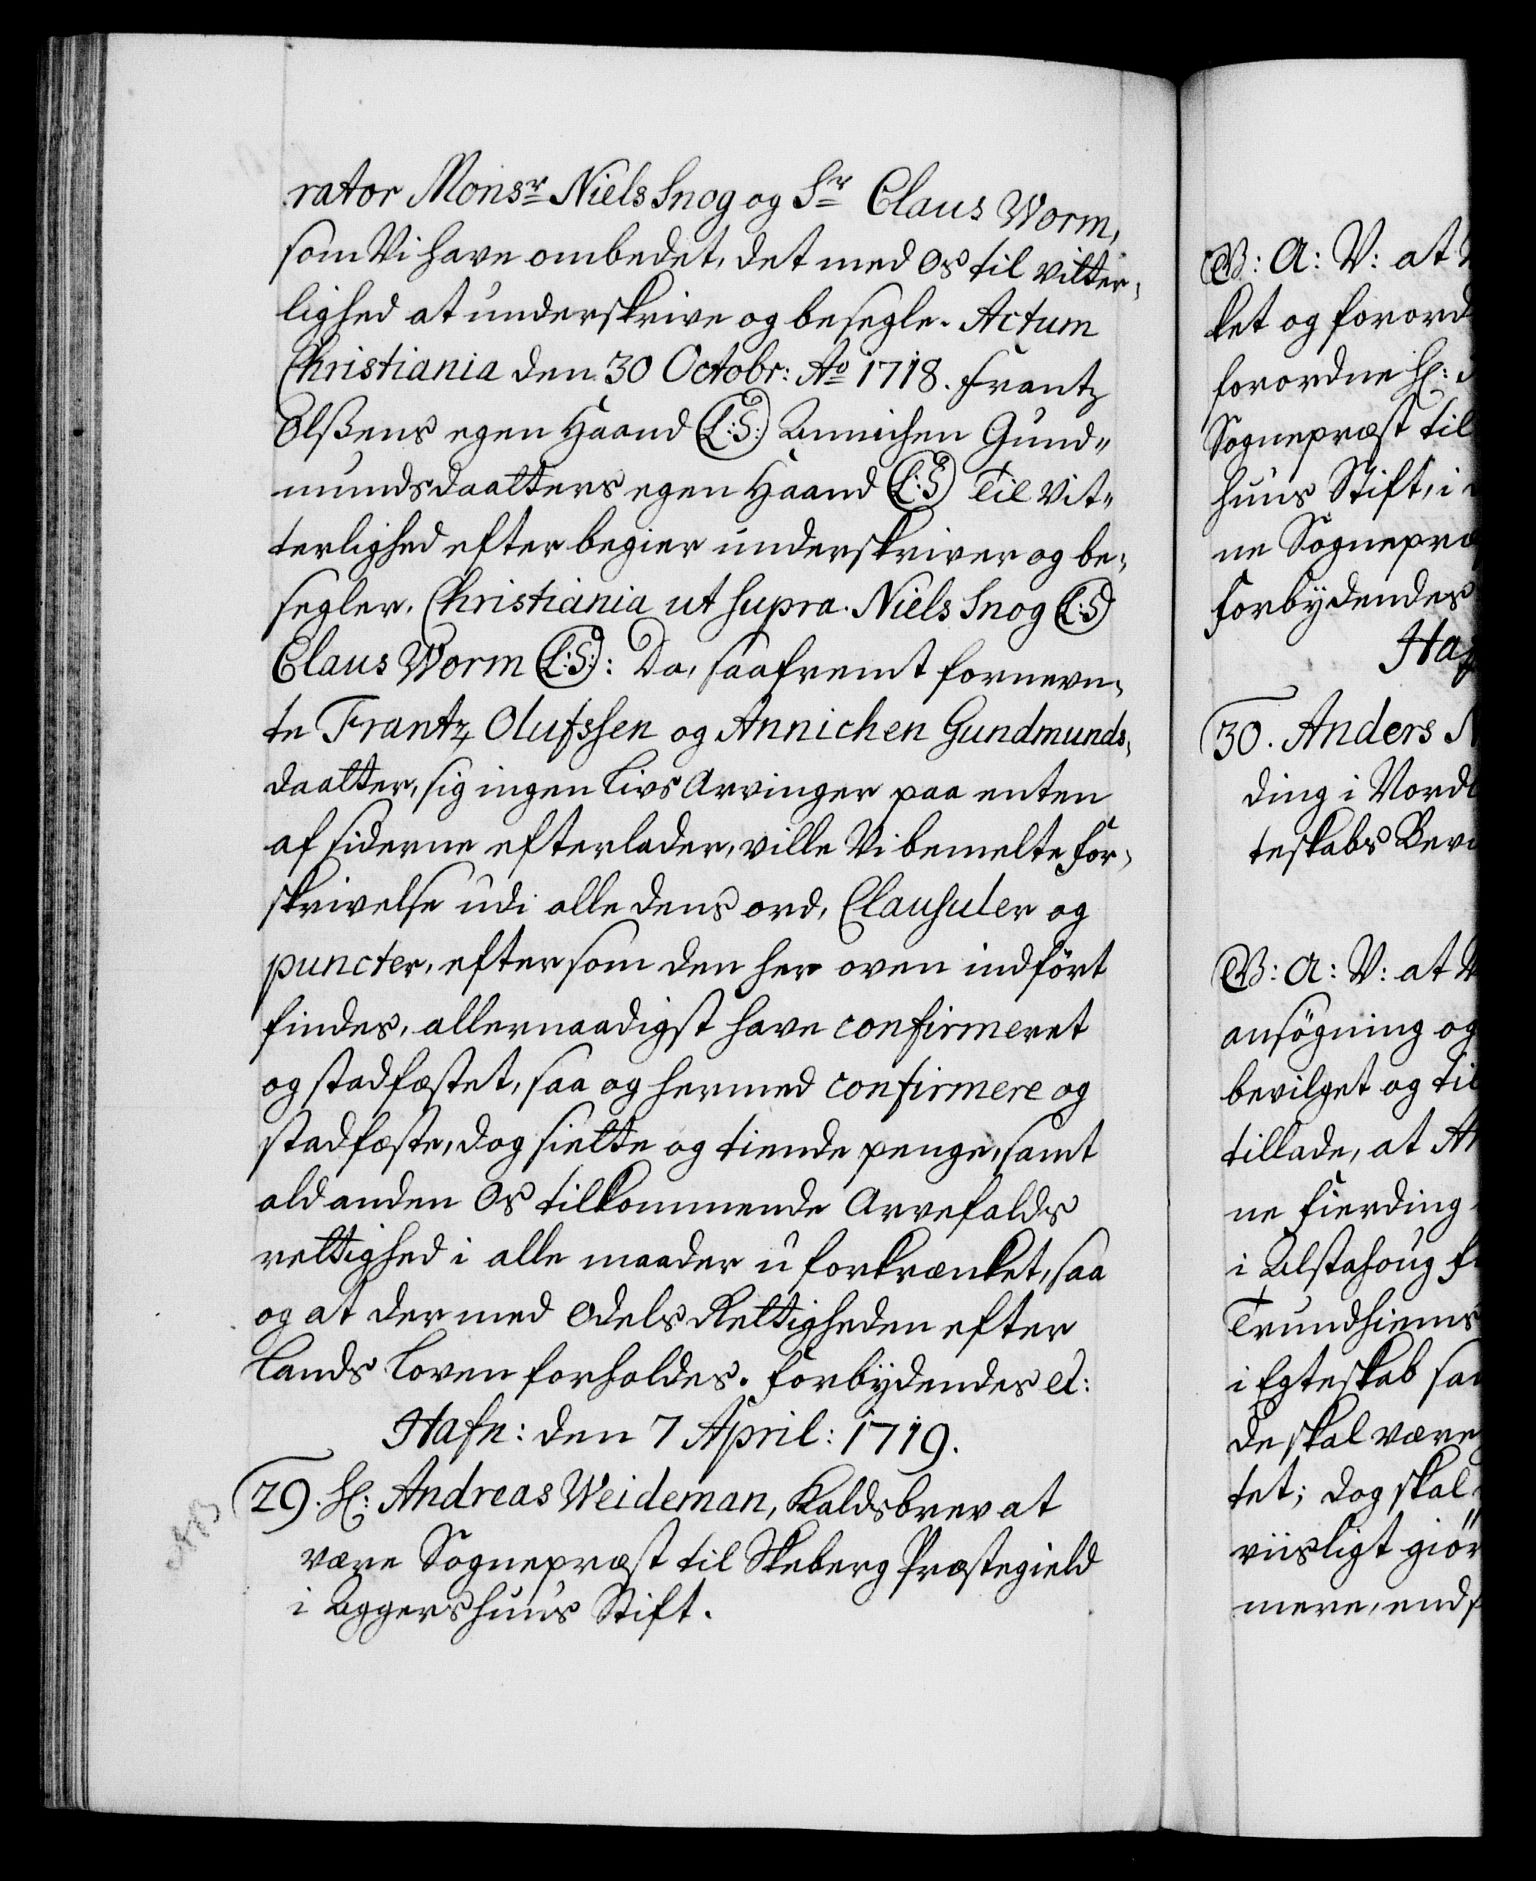 rator Monsr Niels Snog og Sr Claus Worm,
som Vi have ombedet, det med Os til vitter-
lighed at underskrive og besegle. Actum
Christiania den 30 Octobr: Ao 1718. Frantz
Olssens egen Haand (L:S:) Annichen Gund-
mundsdaatters egen Haand (L:S) Til Vit-
terlighed efter begier underskriver og be-
segler. Christiania ut supra. Niels Snog (L:S)
Claus Worm (L:S:): Da, saafremt fornevn-
te Frantz Olufssen og Annichen Gundmunds-
daatter, sig ingen Livs Arvinger paa enten
af siderne efterlader, ville Vi bemelte For-
skrivelse udi alle dens ord, Clausuler og
puncter, eftersom den her oven indført
findes, allernaadigst have confirmeret
og stadfæstet, saa og hermed confirmere og
stadfæste, dog siette og tiende penge, samt
ald anden Os tilkommende Arvefalds
rettighed i alle maader uforkrænket, saa
og at der med Odels Rettigheden efter
Lands Loven forholdes. Forbydendes et:
Hafn: den 7 April: 1719.
29. Hr: Andreas Weideman, Kaldsbrev at
være Sognepræst til Skeberg Præstegield
i Aggershuus Stift.
G: A: V: at
ket og forord
forordne Hr:
Sognepræst til
huus Stift, i
ne Sognepræ
Forbydendes
Haf
30. Anders N
ding i Vord
teskabs Bev
G: A: V: at V
ansøgning og
bevilget og til
tillade, at An
ne Fierding
i Alstahoug F
Trundhiems
i Egteskab sa
de skal være
tet; dog skal
viisligt giør
mere, end f